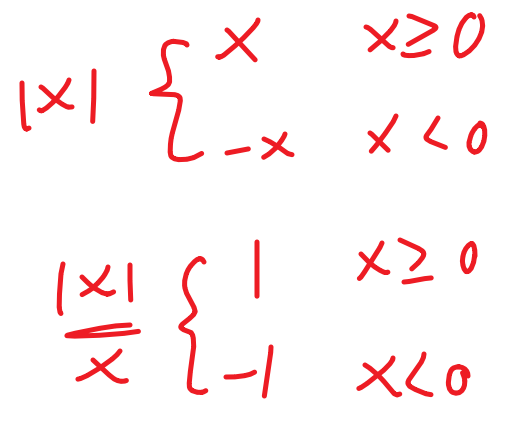 |x| { x x ≥ 0
-x x < 0
|x|/x { 1 x ≥ 0
-1 x < 0